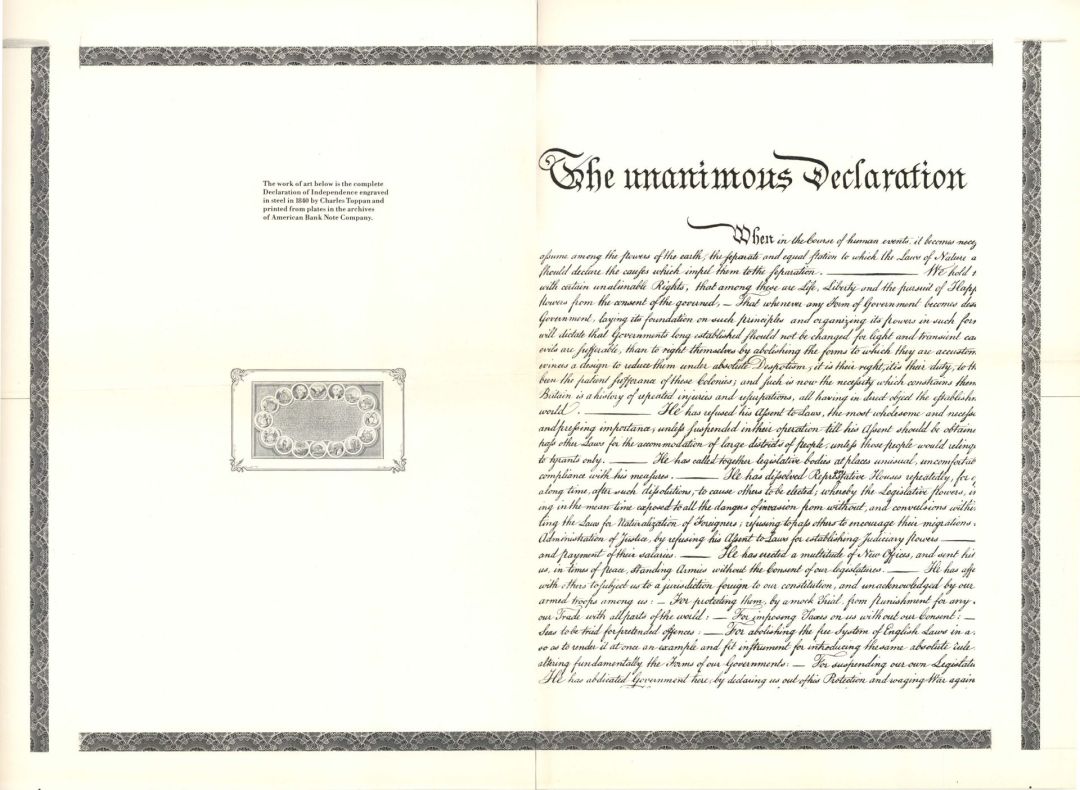 The work of art below is the complete
Declaration of Independence engraved
in steel in 1840 by Charles Toppan and
printed from plates in the archives
of American Bank Note Company.
The unanimous Declaration
When in the Course of human events, it becomes nece
assume among the powers of the earth, the separate and equal station to which the Laws of Nature a
should declare the causes which impel them to the separation. We hold t
with certain unalienable Rights, that among these are Life, Liberty and the pursuit of Happ
powers from the consent of the governed, — That whenever any Form of Government becomes des
Government, laying its foundation on such principles and organizing its powers in such for
will dictate that Governments long established should not be changed for light and transient cau
evils are sufferable, than to right themselves by abolishing the forms to which they are accustom
evinces a design to reduce them under absolute Despotism, it is their right, it is their duty, to th
been the patient sufferance of these Colonies; and such is now the necessity which constrains them
Britain is a history of repeated injuries and usurpations, all having in direct object the establishm
world. He has refused his Assent to Laws, the most wholesome and necess
and pressing importance, unless suspended in their operation till his Assent should be obtaine
pass other Laws for the accommodation of large districts of people, unless those people would relinq
to tyrants only. He has called together legislative bodies at places unusual, uncomfortab
compliance with his measures. He has dissolved Representative Houses repeatedly, for o
along time, after such dissolutions, to cause others to be elected; whereby the Legislative powers, in
ing in the mean time exposed to all the dangers of invasion from without, and convulsions withi
ting the Laws for Naturalization of Foreigners; refusing to pass others to encourage their migrations
Administration of Justice, by refusing his Assent to Laws for establishing Judiciary powers
and payment of their salaries. He has erected a multitude of New Offices, and sent hit
us, in times of peace, Standing Armies without the Consent of our legislatures. He has affe
with others to subject us to a jurisdiction foreign to our constitution, and unacknowledged by our
armed troops among us: — For protecting them, by a mock Trial, from punishment for any
our Trade with all parts of the world: — For imposing Taxes on us without our Consent: —
Seas to be tried for pretended offences: — For abolishing the free System of English Laws in a
so as to render it at once an example and fit instrument for introducing the same absolute rule
altering fundamentally the Forms of our Governments: — For suspending our own Legislatu
He has abdicated Government here, by declaring us out of his Protection and waging War again